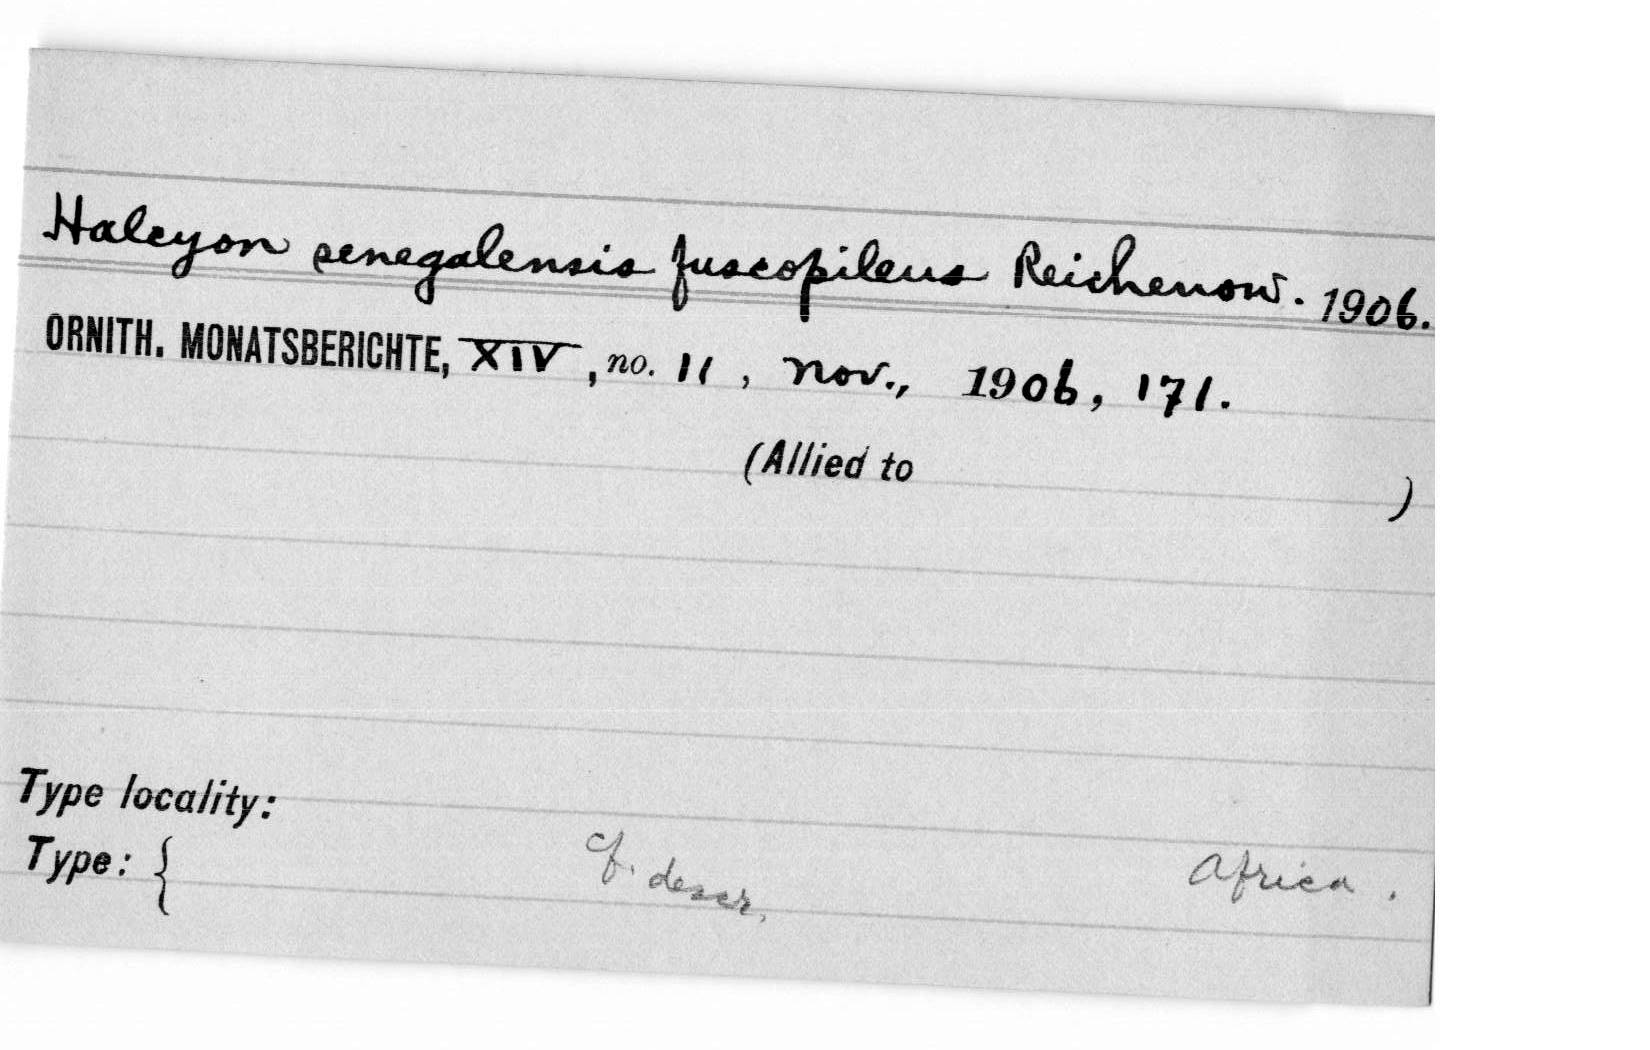 Halcyon senegalensis fuscopileus Reichenow. 1906.
ORNITH. MONATSBERICHTE, XIV, no. 11, Nov., 1906, 171.
(Allied to )
Type locality:
Type: { cf. descr. Africa.